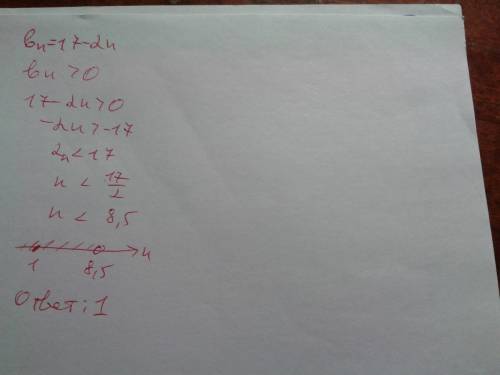 bn=17-2n
bn>0
17-2n>0
-2n>-17
2n<17
n < 17/2
n < 8,5
1 8,5 n
Ответ: 1